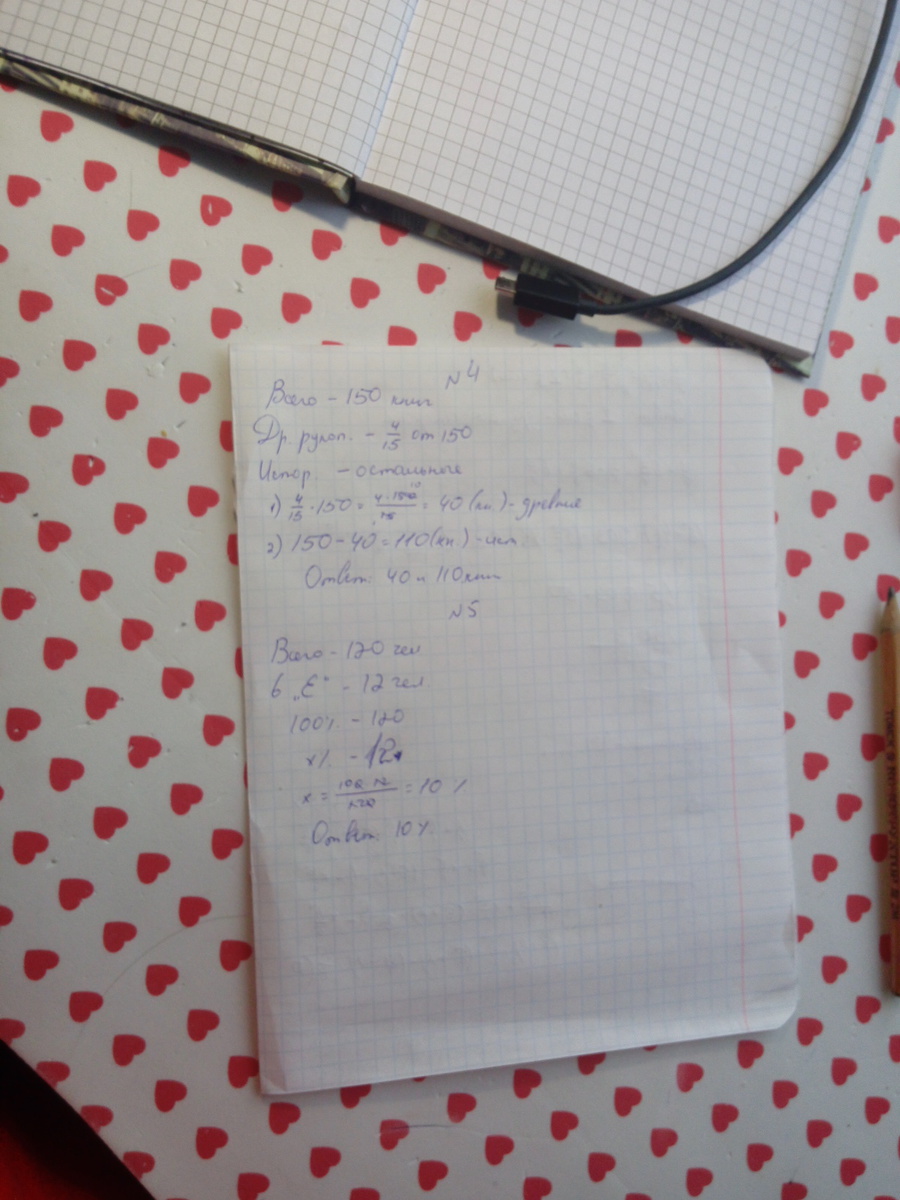 №4
Всего - 150 книг
Др. рукоп. - 4/15 от 150
Истор - остальные
1) 4/15 · 150 = 4·150/15 = 40 (кн.) - древние
10
1
2) 150 - 40 = 110 (кн.) - ист
Ответ: 40 и 110 книг
№5
Всего - 120 чел
6 „Е" - 12 чел.
100% - 120
x% - 12
x = 100·12/120 = 10%
Ответ: 10%.